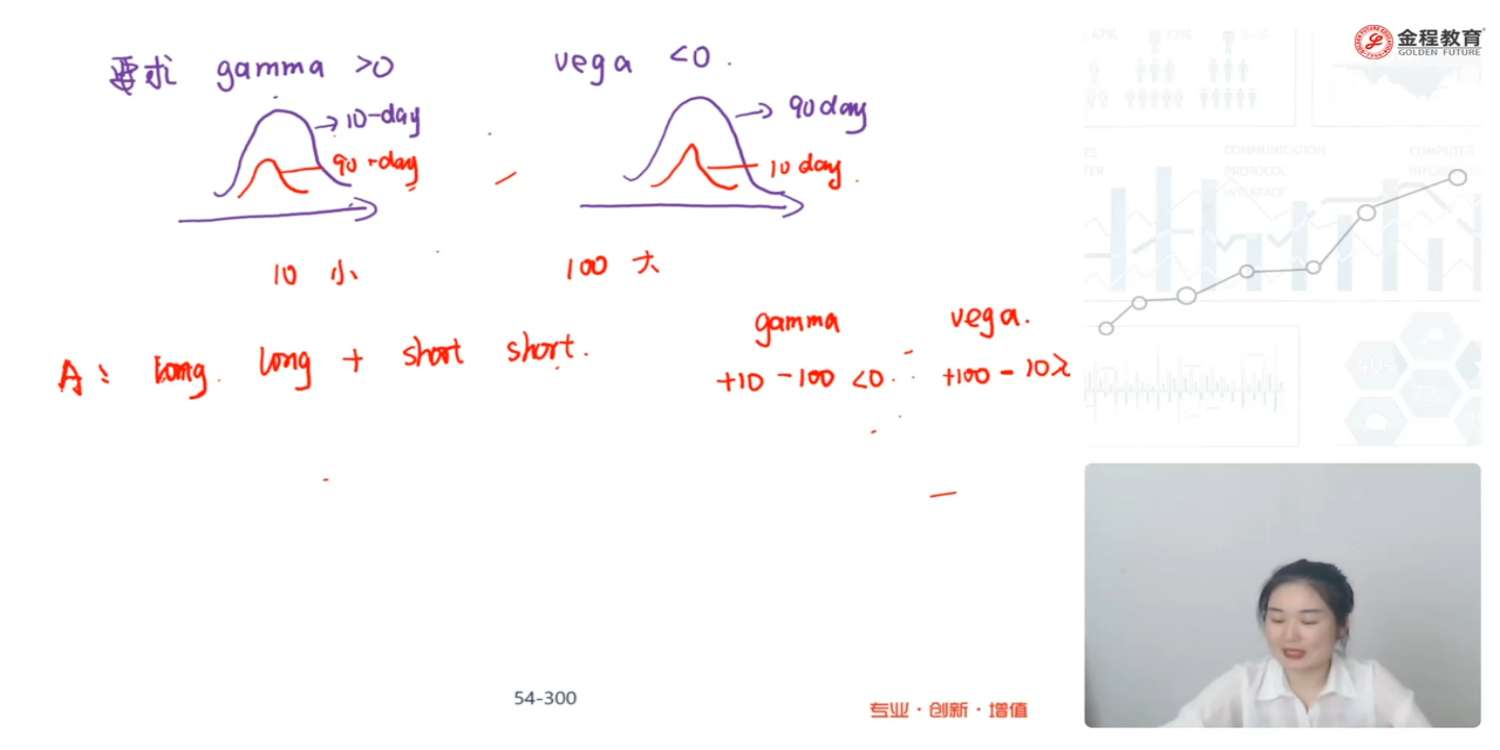 要求 gamma >0
vega <0.
10-day
90-day
90 day
10 day.
10 小
100 大
gamma
vega.
A: long. long + short short.
+10 -100 <0.
+100 - 10>
54-300
专业·创新·增值
金程教育
GOLDEN FUTURE
COMMUNICATION
PROTOCOL